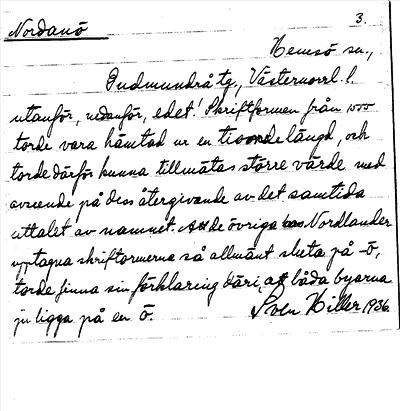 Nordanö
3.
Hemsö sn.,
Gudmundrå tg., Västernorrl. l.
utanför, nedanför, edet! Skriftformen från 1500
torde vara hämtad ur en tiondelängd, och
torde därför kunna tillmätas större värde med
avseende på dess återgivande av det samtida
uttalet av namnet. Att de övriga hos Nordlander
upptagna skriftformerna så allmänt sluta på -ö,
torde finna sin förklaring däri, att båda byarna
ju ligga på en ö.
Sven Hiller 1936.